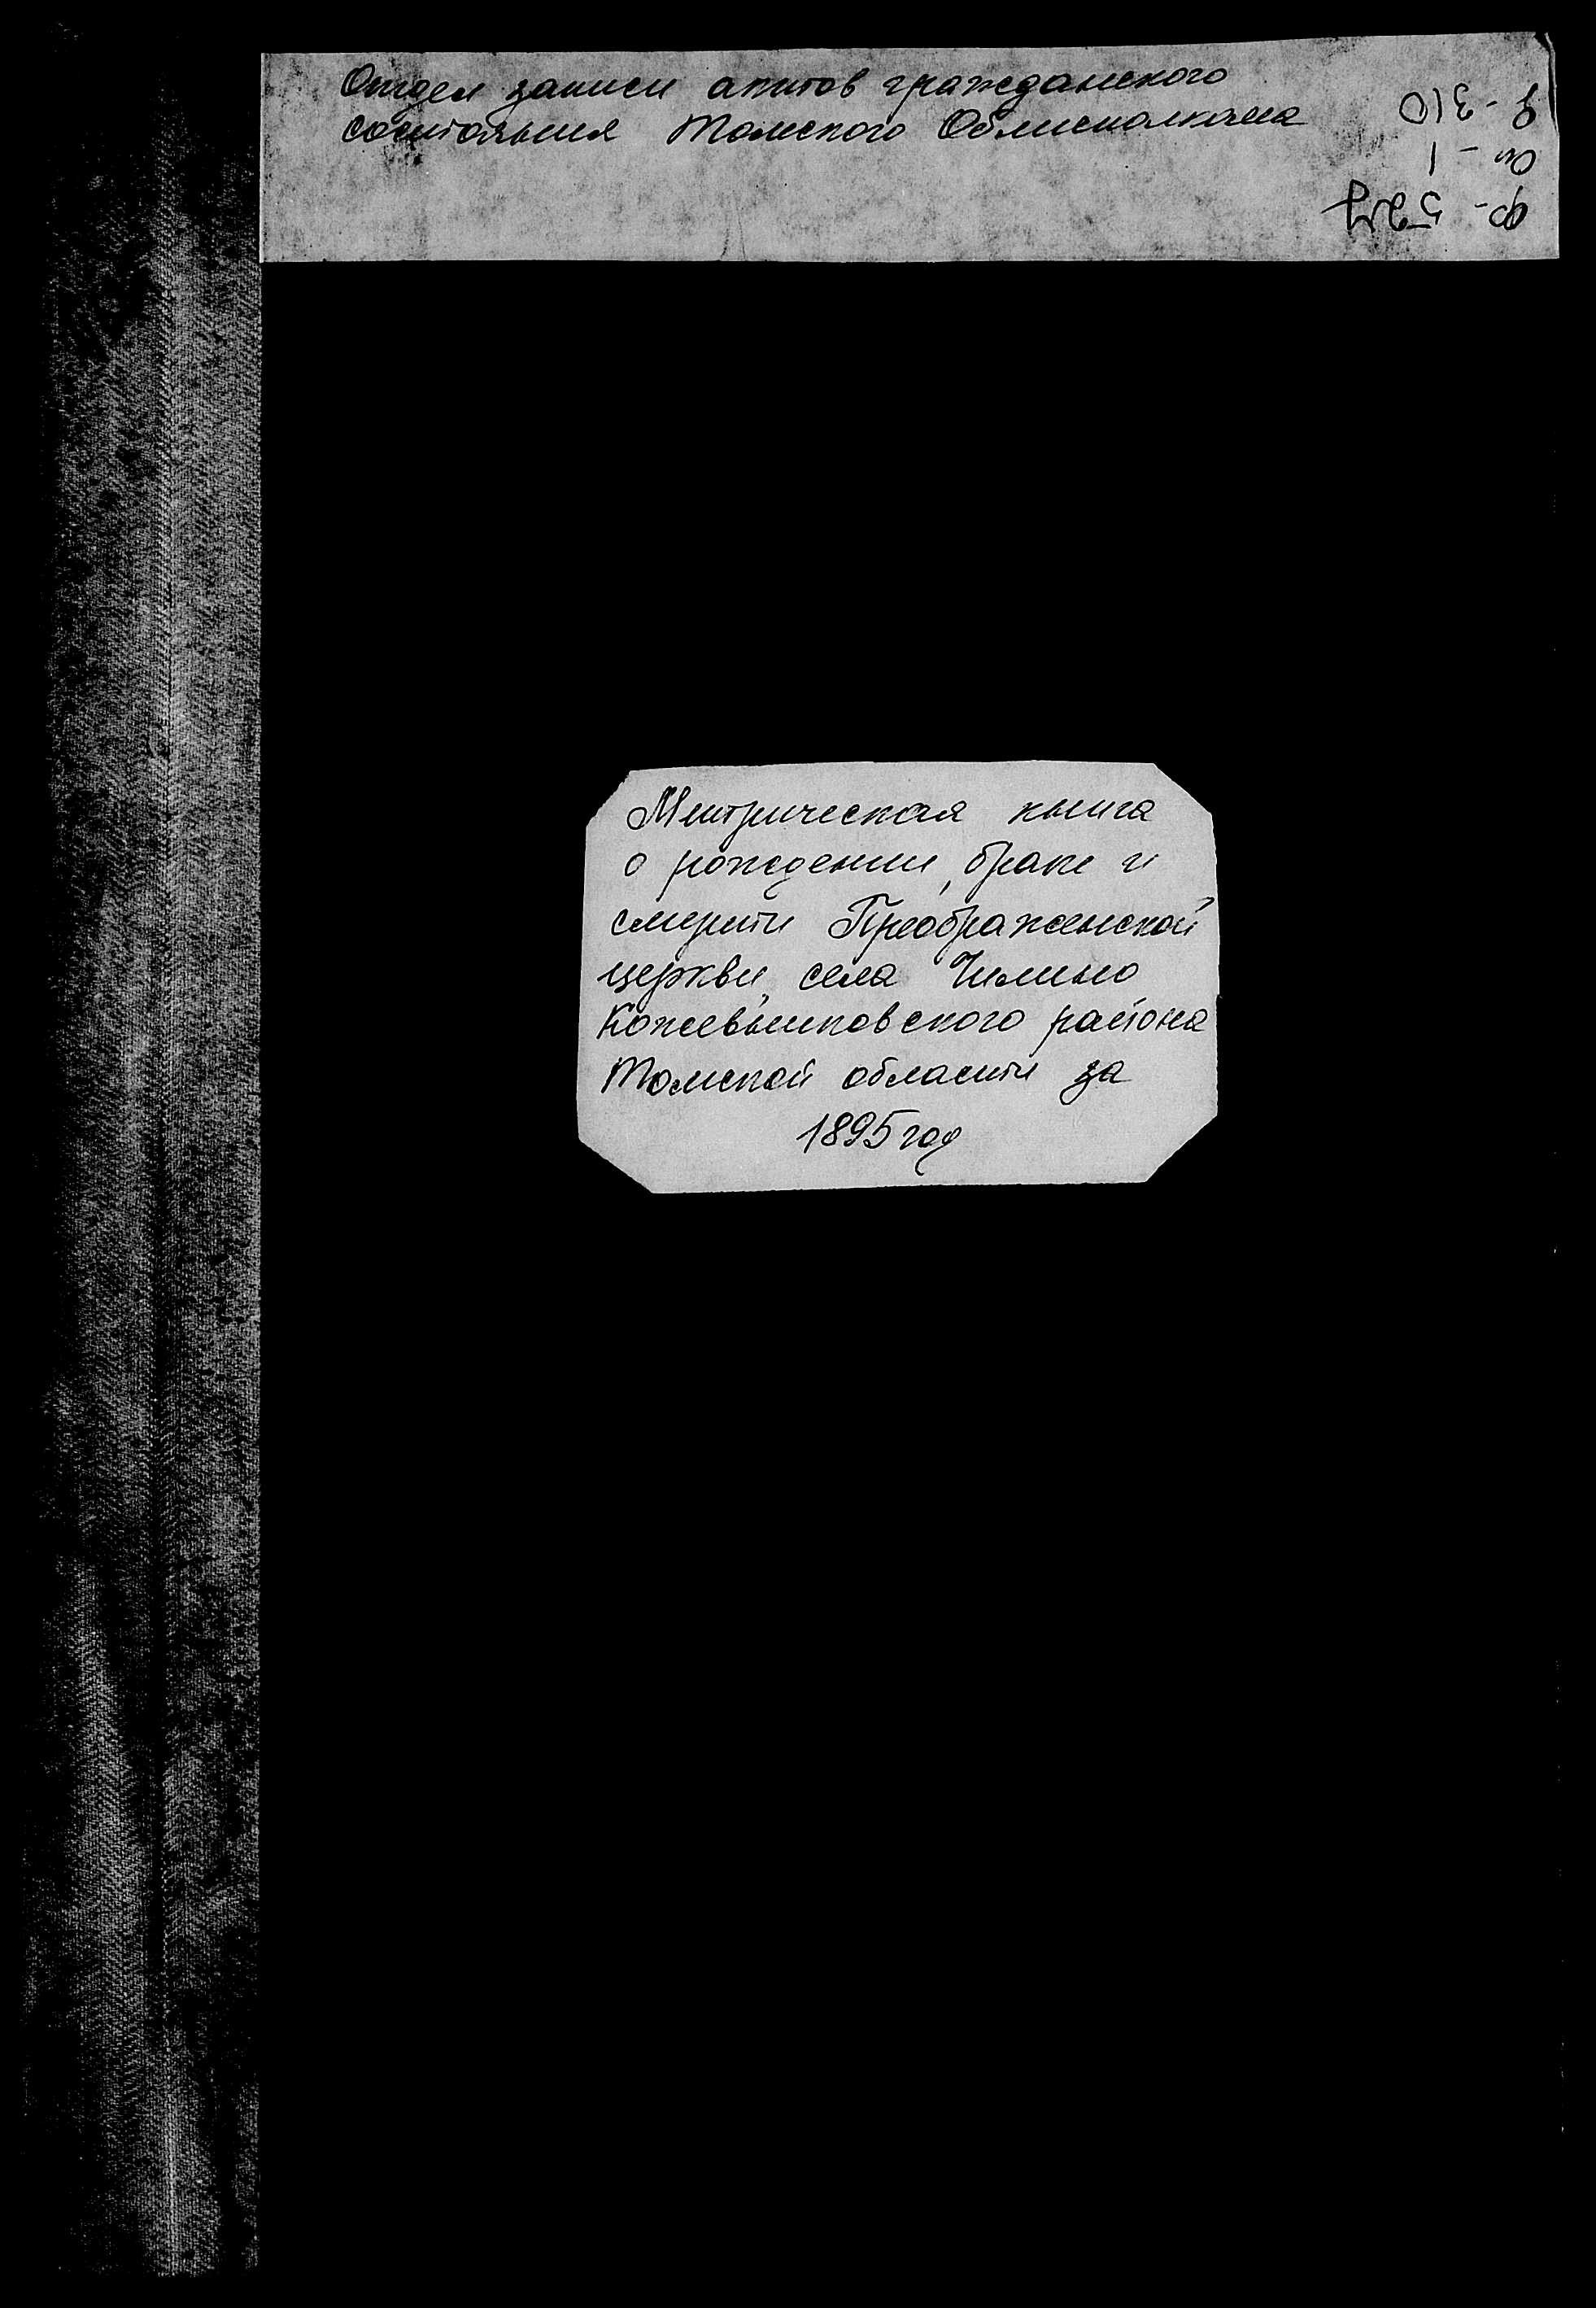 Отдел записи актов гражданского
состояния Томского Облисполкома
ф- 527
оп - 1
д - 310
Метрическая книга
о рождении, браке и
смерти Преображенской
церкви села Чилино
Кожевниковского района
Томской области за
1895 год